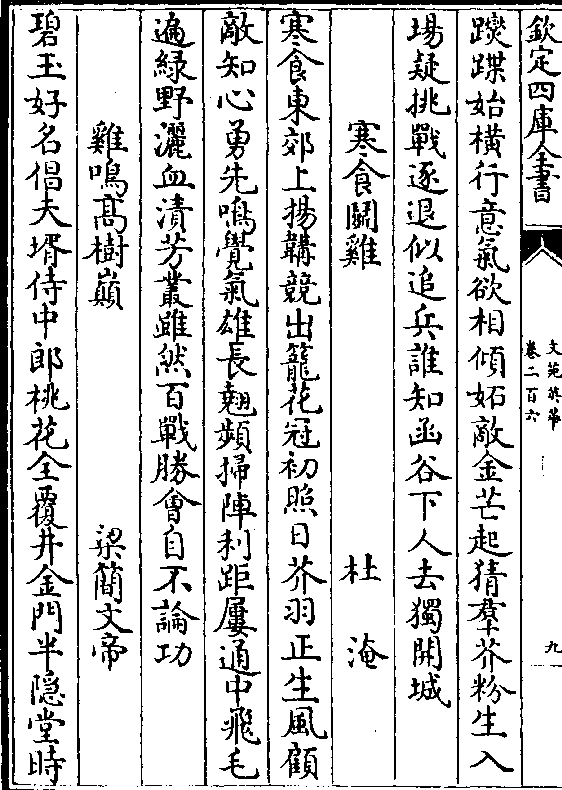 欽定四庫全書
文苑英華
卷二百六
九
蹀躞始橫行意氣欲相傾妬敵金芒起猜羣芥粉生入
場疑挑戰逐退似追兵誰知函谷下人去獨開城
寒食鬬雞 杜淹
寒食東郊上揚鞲競出籠花冠初照日芥羽正生風顧
敵知心勇先鳴覺氣雄長翹頻掃陣利距屢通中飛毛
遍綠野灑血漬芳叢雖然百戰勝會自不論功
雞鳴髙樹巔 梁簡文帝
碧玉好名倡夫壻侍中郎桃花全覆井金門半隠堂時